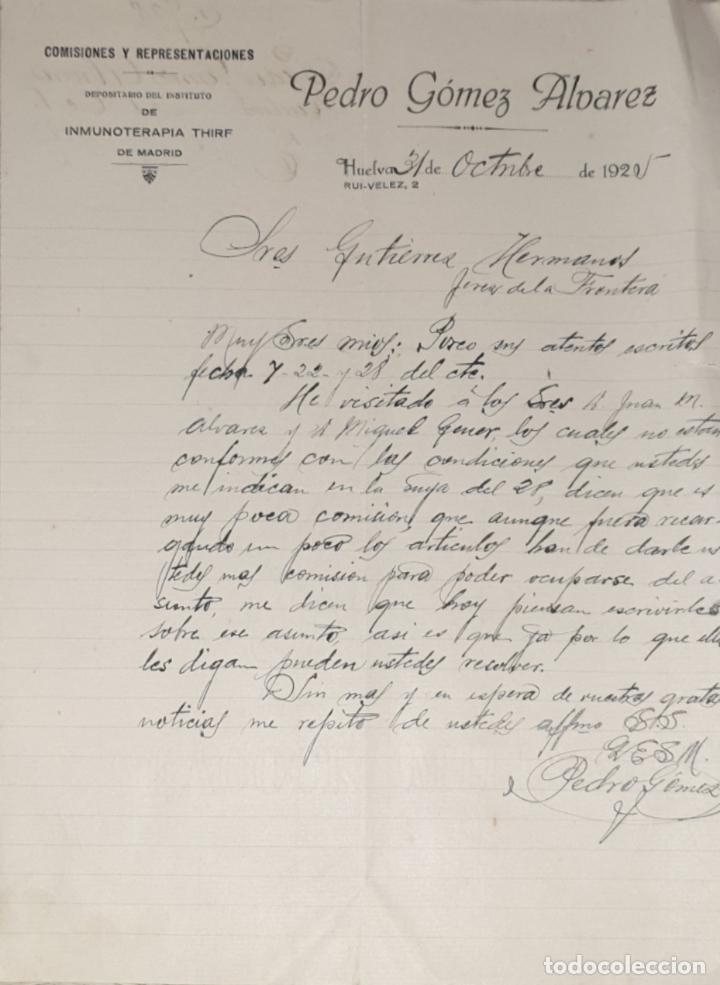 COMISIONES Y REPRESENTACIONES
DEPOSITARIO DEL INSTITUTO
DE
INMUNOTERAPIA THIRF
DE MADRID
Pedro Gómez Alvarez
Huelva 31 de Octubre de 1925
RUI-VELEZ, 2
Sres Gutierrez Hermanos
Jerez de la Frontera
Muy Sres mios: Poseo sus atentos escritos
fecha 7-22- y 28 del cte.
He visitado á los Sres D. Juan M.
Alvarez y D Miguel Gener, los cuales no estan
conformes con las condiciones que ustedes
me indican en la suya del 28, dicen que es
muy poca comision, que aunque fuera recar-
gando un poco los articulos han de darle us
tedes mas comision para poder ocuparse del a-
sunto, me dicen que hoy piensan escrivirles
sobre ese asunto, asi es que ya por lo que ello
les digan pueden ustedes resolver.
Sin mas y en espera de vuestras gratas
noticias me repito de ustedes affmo SS.
Q E S M.
Pedro Gómez
todocoleccion.net